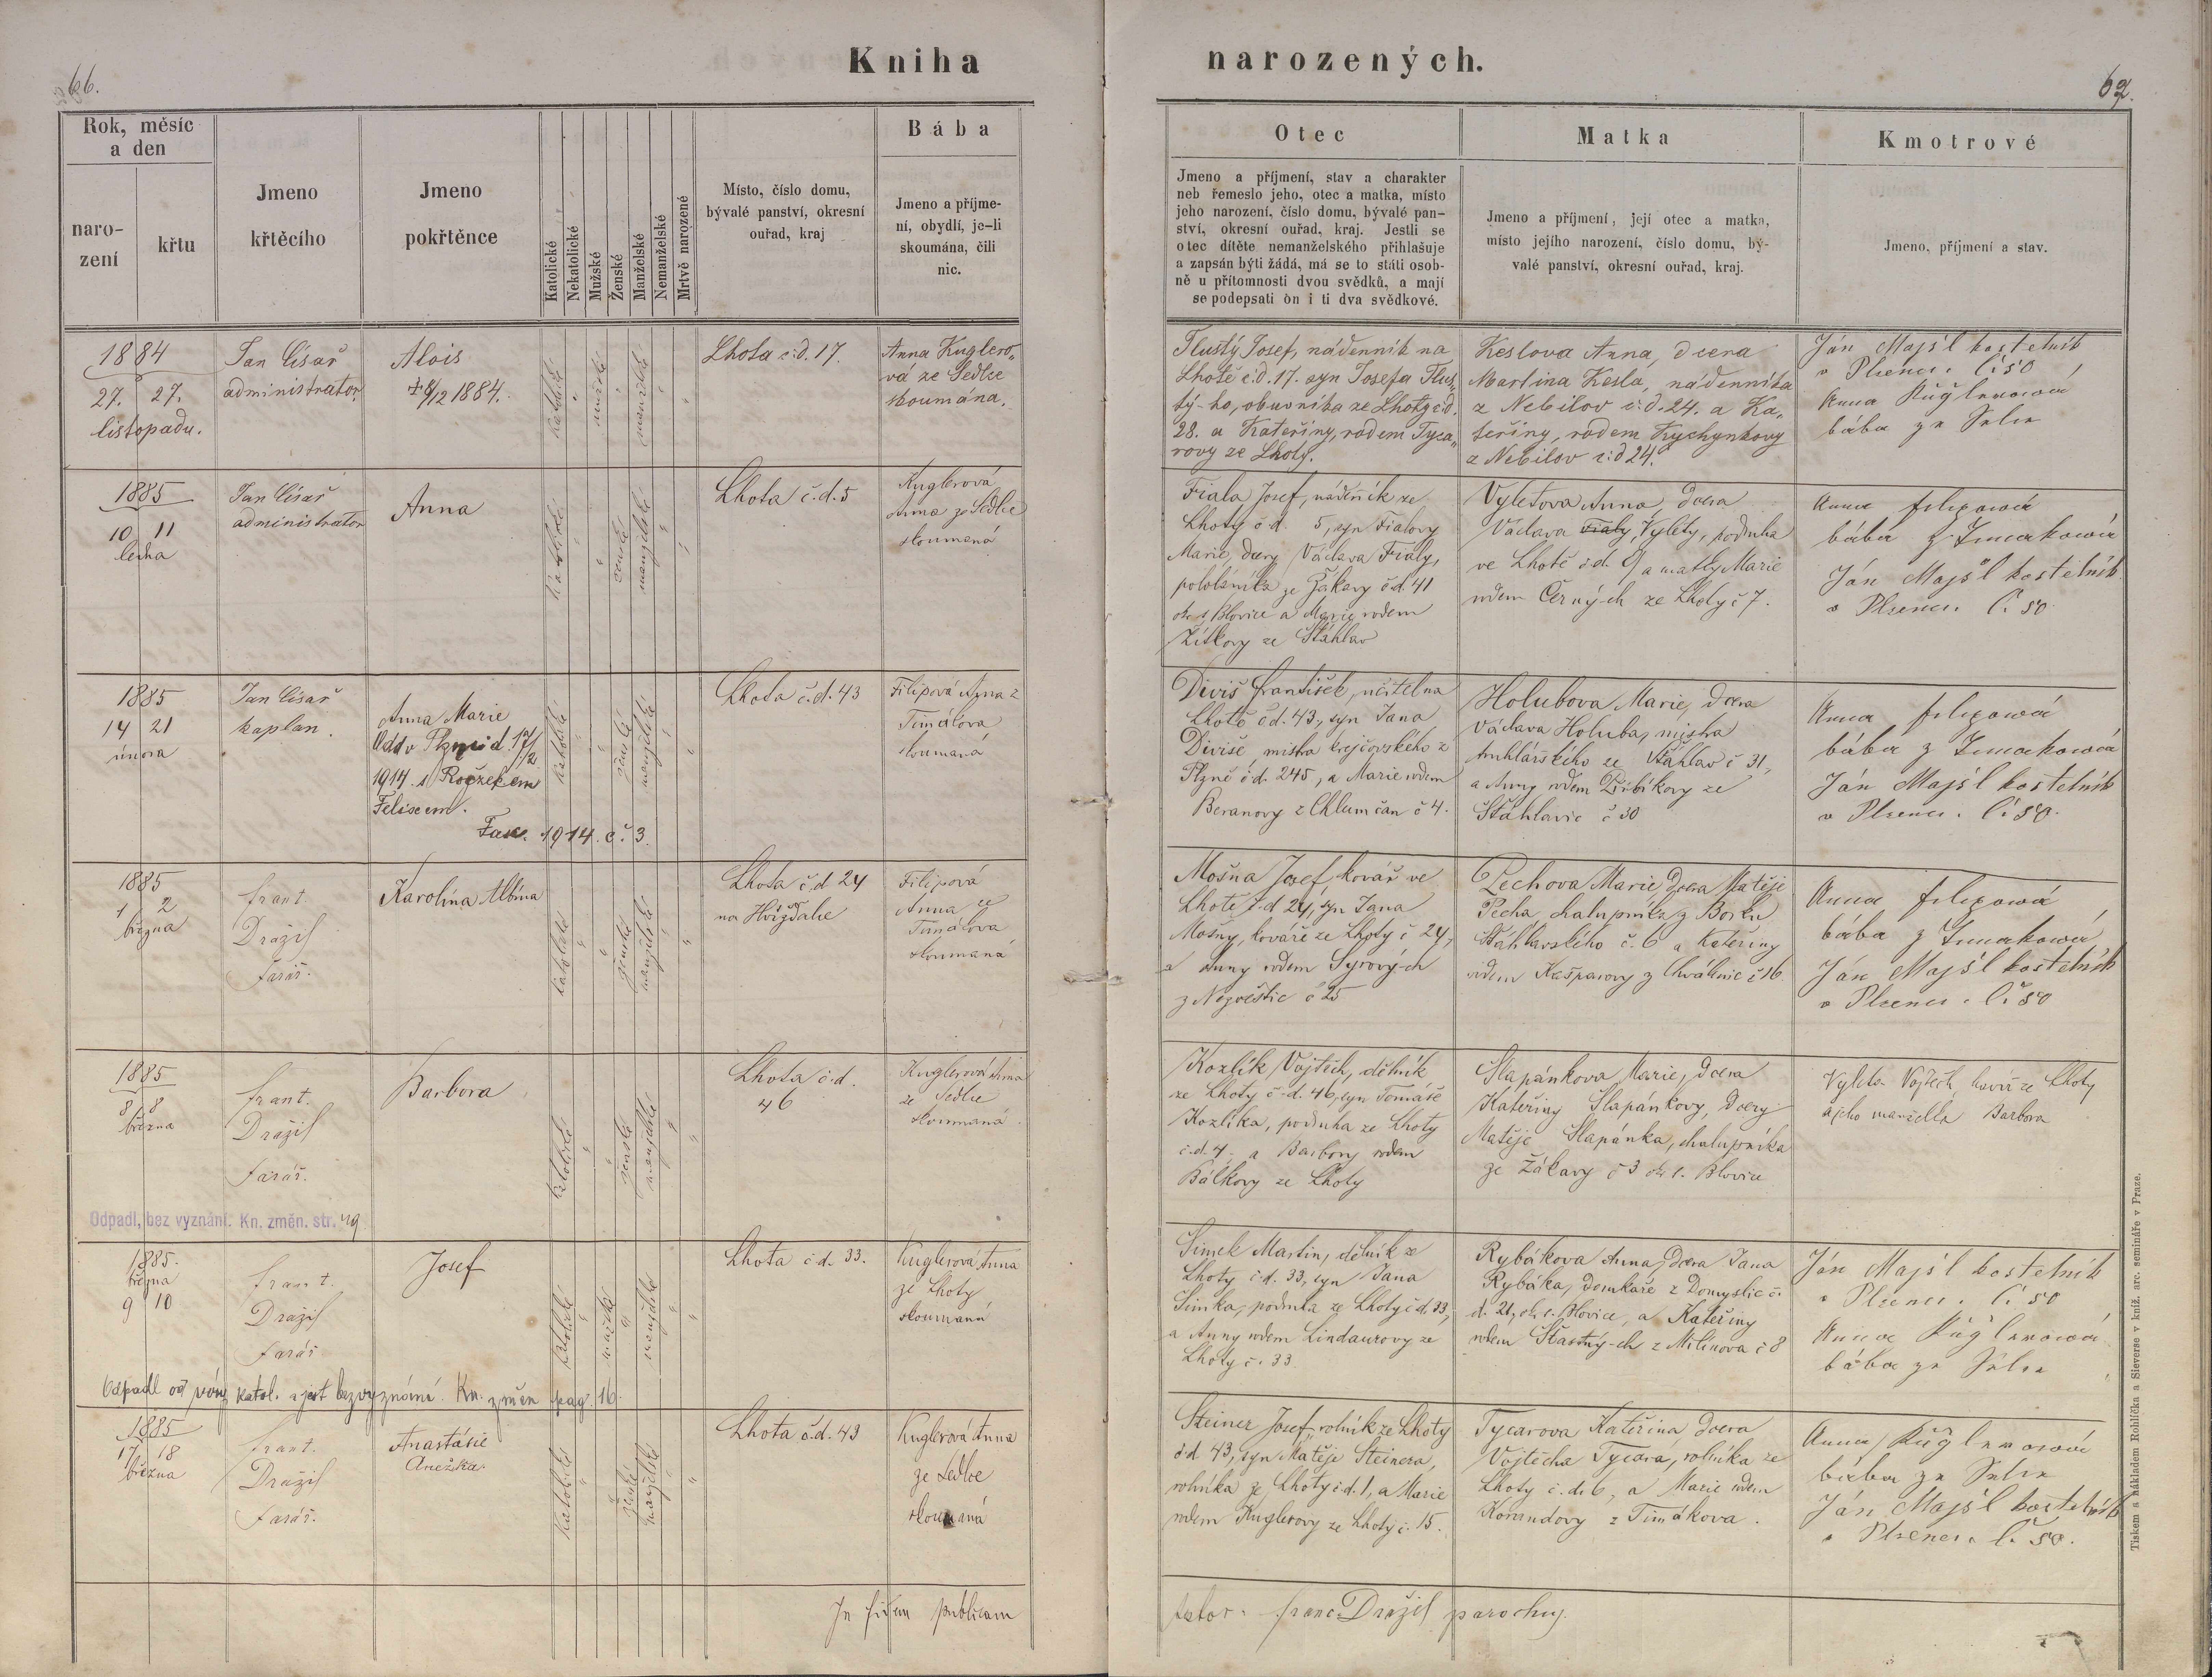 66.
Kniha narozených.
62.
Rok, měsíc
a den
naro-
zení
křtu
Jmeno
křtěcího
Jmeno
pokřtěnce
Katolické
Nekatolické
Mužské
Ženské
Manželské
Nemanželské
Mrtvě narozené
Místo, číslo domu,
bývalé panství, okresní
ouřad, kraj
Bába
Jmeno a příjme-
ní, obydlí, je-li
skoumána, čili
nic.
Otec
Jmeno a příjmení, stav a charakter
neb řemeslo jeho, otec a matka, místo
jeho narození, číslo domu, bývalé pan-
ství, okresní ouřad, kraj. Jestli se
otec dítěte nemanželského přihlašuje
a zapsán býti žádá, má se to státi osob-
ně u přítomnosti dvou svědků, a mají
se podepsati on i ti dva svědkové.
Matka
Jmeno a příjmení, její otec a matka,
místo jejího narození, číslo domu, bý-
valé panství, okresní ouřad, kraj.
Kmotrové
Jmeno, příjmení a stav.
1884
27. 27.
listopadu.
Jan Císař
administrator
Alois
+ 8/12 1884.
katolické
mužské
manželské
Lhota č.d. 17.
Anna Kuglero„
vá ze Sedlce
skoumána.
Tlustý Josef, nádenník na
Lhotě č.d. 17. syn Josefa Tlus„
tý-ho, obuvníka ze Lhoty č.d.
28. a Kateřiny, rodem Tyca„
rovy ze Lhoty.
Keslova Anna, dcera
Martina Kesla, nádenníka
z Nebilov č.d. 24. a Ka„
teřiny, rodem Kychynkovy
z Nebilov č.d 24.
Ján Majsl kostelník
v Plzenci. č. 50
Anna Kuglerová
bába ze Sedlce
1885
10 11
ledna
Jan Císař
administrator
Anna
katolické
ženské
manželské
Lhota č.d. 5
Kuglerová
Anna ze Sedlce
skoumaná
Fiala Josef, nádeňník ze
Lhoty č d. 5, syn Fialovy
Marie, dcery Václava Fialy,
pololáníka ze Žákavy č.d. 41
okr. Blovice a Marie rodem
Žitkovy ze Šťáhlav
Vyletova Anna, dcera
Václava Fialy, Vylety, podruha
ve Lhotě č.d. 9 a matky Marie
rodem Černý-ch ze Lhoty č 7.
Anna Filipová
bába z Timákova
Ján Majsl kostelník
v Plzenci. č. 50.
1885
14 21
února
Jan Císař
kaplan.
Anna Marie
Odd. v Plzni d. 17/2
1914. s Rožekem
Felixem.
Fasc. 1914. č. 3.
katolické
ženské
manželské
Lhota č.d. 43
Filipová Anna z
Timákova
skoumaná
Diviš František, učitel na
Lhotě č.d. 43, syn Jana
Diviše, mistra krejčovského z
Plzně č.d. 245, a Marie rodem
Beranovy z Chlumčan č 4.
Holubova Marie, dcera
Václava Holuba, mistra
truhlářského ze Šťáhlav č 31,
a Anny rodem
Šťáhlavic č 30
Anna Filipová
bába z Timákova
Ján Majsl kostelník
v Plzenci. č. 50.
1885
1 2
března
Frant.
Dražil
farář.
Karolina Albína
katolické
ženské
manželské
Lhota č.d 24
na Hvížďalce
Filipová
Anna ze
Timákova
skoumaná
Mošna Josef, kovář ve
Lhotě č.d 24, syn Jana
Mošny, kováře ze Lhoty č 24,
a Anny rodem Syrový-ch
z Nezvěstic č 25
Pechova Marie dcera Matěje
Pecha chalupníka z Borku
Šťáhlavského č. 6 a Kateřiny
rodem Kašparovy z Chválenic č 16.
Anna Filipová
bába z Timákova
Ján Majsl kostelník
v Plzenci. č. 50
1885
8 8
března
Frant.
Dražil
farář.
Barbora
katolické
ženské
manželské
Lhota č.d.
46
Kuglerová Anna
ze Sedlce
skoumaná
Kozlík Vojtěch, dělník
ze Lhoty č.d. 46, syn Tomáše
Kozlíka, podruha ze Lhoty
č.d. 4, a Barbory rodem
Bálkovy ze Lhoty
Slapánkova Marie, dcera
Kateřiny Slapánkovy, dcery
Matěje Slapánka, chalupníka
ze Žákavy č 3 okr. Blovice
Vyleta Vojtěch, kovář ze Lhoty
a jeho manželka Barbora
Odpadl, bez vyznání. Kn. změn. str. 49
1885.
března
9 10
Frant.
Dražil
farář
Josef
katolické
mužské
manželské
Lhota č d. 33.
Kuglerová Anna
ze Lhoty
skoumaná
Šimek Martin, dělník ze
Lhoty č.d. 33, syn Jana
Šimka, podruha ze Lhoty č d. 33,
a Anny rodem Lindaurovy ze
Lhoty č. 33.
Rybákova Anna, dcera Jana
Rybáka, domkáře z Domyslic č.
d. 21, ok. Blovice, a Kateřiny
rodem Šťastný-ch z Milínova č 8
Ján Majsl kostelník
v Plzenci. č. 50
Anna Kuglerová
bába ze Sedlce
Odpadl od víry katol. a jest bezvyznání. Kn. změn pag. 16.
1885
17 18
března
Frant.
Dražil
farář.
Anastásie
Anežka
katolické
ženské
manželské
Lhota č.d. 43
Kuglerová Anna
ze Sedlce
skoumaná
Steiner Josef rolník ze Lhoty
č.d 43, syn Matěje Steinera,
rolníka ze Lhoty č.d. 1, a Marie
rodem Kuglerovy ze Lhoty č. 15.
Tycarova Kateřina, dcera
Vojtěcha Tycara, rolníka ze
Lhoty č.d. 6, a Marie rodem
Korandovy z Timákova.
Anna Kuglerová
bába ze Sedlce
Ján Majsl kostelník
v Plzenci. č. 50.
In fidem publicam
Franc. Dražil parochus.
Tiskem a nákladem Rohlíčka a Sieverse v kníž. arc. semináře v Praze.